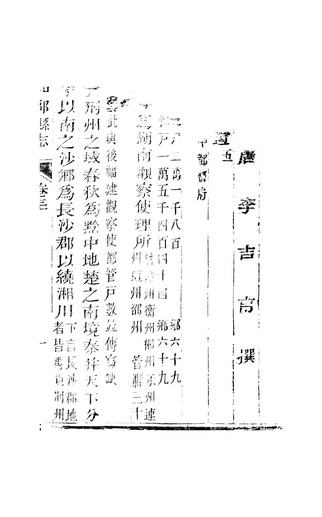 唐李吉甫撰
道五
中都督府
戶二萬一千八百 鄉六十九
戶一萬五千四百四十四 鄉六十九
爲湖南觀察使理所 州衡州郴州永州連
州道州邵州 管縣三十
此與後福建觀察使都管戶數並傳寫缺
荆州之域春秋爲黔中地楚之南境秦并天下分
以南之沙鄉爲長沙郡以繞湘川 下言長沙郡地
者皆荆州
郡縣志 卷三 一